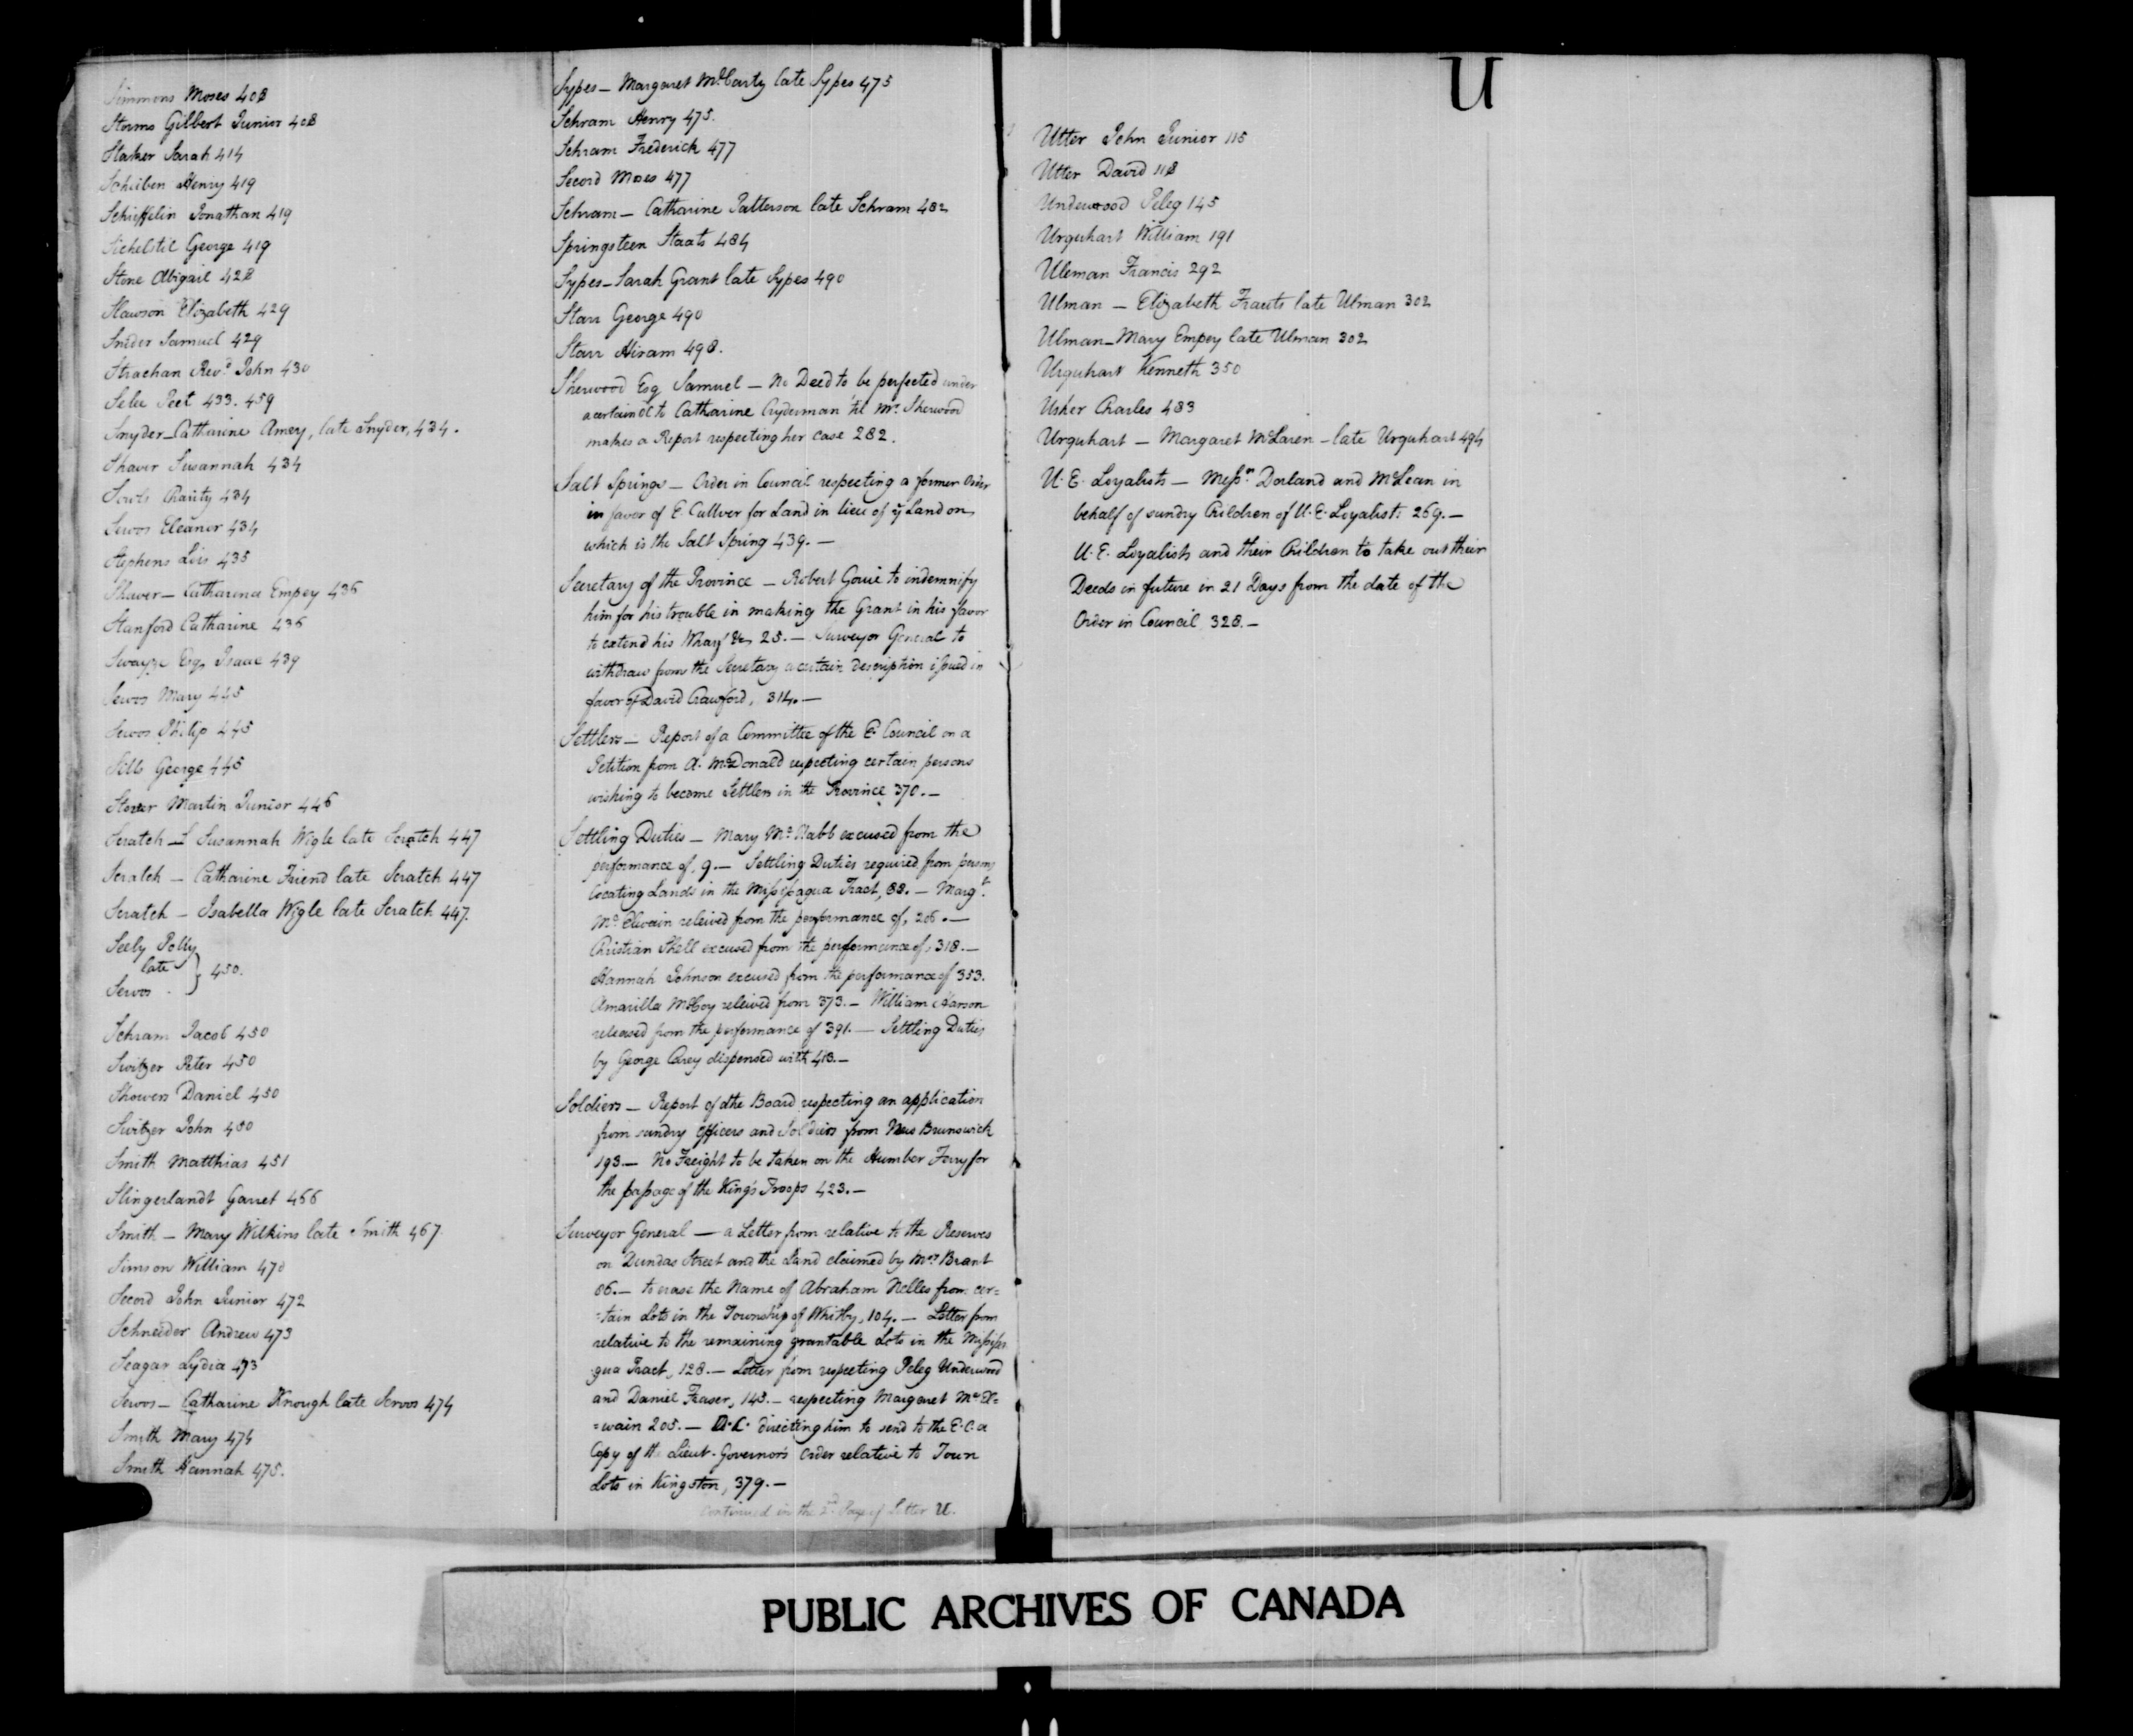 Simmons Moses 408
Storms Gilbert Junior 408
Staker Sarah 414
Schieben Henry 419
Schieffelin Jonathan 419
Sichelstil George 419
Stone Abigail 428
Slawson Elizabeth 429
Snider Samuel 429
Strachan Revd. John 430
Selee Peet 433. 459
Snyder_Catharine Amey, late Snyder, 434.
Shaver Susannah 434
Sowls Charity 434
Servos Eleanor 434
Stephens Lois 435
Shaver— Catharine Empey 436
Stanford Catharine 436
Swayze Esq. Isaac 439
Servos Mary 445
Servos Philip 445
Sills George 445
Stover Martin Junior 446
Scratch — Susannah Wigle late Scratch 447
Scratch — Catharine Friend late Scratch 447
Scratch — Isabella Wigle late Scratch 447.
Seely Polly
late } 450.
Servos
Schram Jacob 450
Switzer Peter 450
Showers Daniel 450
Switzer John 450
Smith Matthias 451
Slingerlandt Garret 466
Smith — Mary Wilkins late Smith 467
Simson William 470
Secord John Junior 472
Schneider Andrew 473
Seagar Lydia 473
Servos — Catharine Knough late Servos 474
Smith Mary 474
Smith Hannah 475.
Sypes — Margaret McCarty late Sypes 475
Schram Henry 475.
Schram Frederick 477
Secord Moses 477
Schram — Catharine Patterson late Schram 482
Springsteen Staats 484
Sypes — Sarah Grant late Sypes 490
Starr George 490
Starr Hiram 498.
Sherwood Esq Samuel — No Deed to be perfected under
a certain OC to Catharine Cryderman 'til Mr. Sherwood
makes a Report respecting her case 282.
Salt Springs — Order in Council respecting a former Order
in favor of E. Cullver for Land in lieu of ye Land on
which is the Salt Spring 439. —
Secretary of the Province — Robert Gouie to indemnify
him for his trouble in making the Grant in his favor
to extend his Wharf &c 25. — Surveyor General to
withdraw from the Secretary a certain Description issued in
favor of David Crawford, 314. —
Settlers — Report of a Committee of the E. Council on a
Petition from A. McDonald respecting certain persons
wishing to become Settlers in the Province 370. —
Settling Duties — Mary McNabb excused from the
performance of, 9. — Settling Duties required from persons
locating Lands in the Missisagua Tract, 88. — Margt.
McElwain releived from the performance of, 206. —
Christian Shell excused from the performance of, 318. —
Hannah Johnson excused from the performance of 353.
Amarilla McCoy releived from 373. — William Carson
released from the performance of 391. — Settling Duties
by George Carey dispensed with 413. —
Soldiers — Report of the Board respecting an application
from sundry Officers and Soldiers from New Brunswick
193 — No Freight to be taken on the Humber Ferry for
the passage of the King's Troops 423. —
Surveyor General — a Letter from relative to the Reserves
on Dundas Street and the Land claimed by Mrs. Brant
86. — to erase the Name of Abraham Nelles from cer=
=tain Lots in the Township of Whitby, 104. — Letter from
relative to the remaining grantable Lots in the Missisa
gua Tract, 128. — Letter from respecting Peleg Underwood
and Daniel Fraser, 145. — respecting Margaret McEl=
=wain 205. — O.C. directing him to send to the E.C. a
Copy of the Lieut. Governor's Order relative to Town
Lots in Kingston, 379. —
Continued in the 2nd. Page of Letter U.
U
Utter John Junior 115
Utter David 118
Underwood Peleg 145
Urquhart William 191
Uleman Francis 292
Ulman — Elizabeth Frauts late Ulman 302
Ulman — Mary Empey late Ulman 302
Urquhart Kenneth 350
Usher Charles 483
Urquhart — Margaret McLaren — late Urquhart 494
U. E. Loyalists — Messrs. Dorland and McLean in
behalf of sundry Children of U. E. Loyalists 269. —
U. E. Loyalists and their Children to take out their
Deeds in future in 21 Days from the date of the
Order in Council 328. —
PUBLIC ARCHIVES OF CANADA